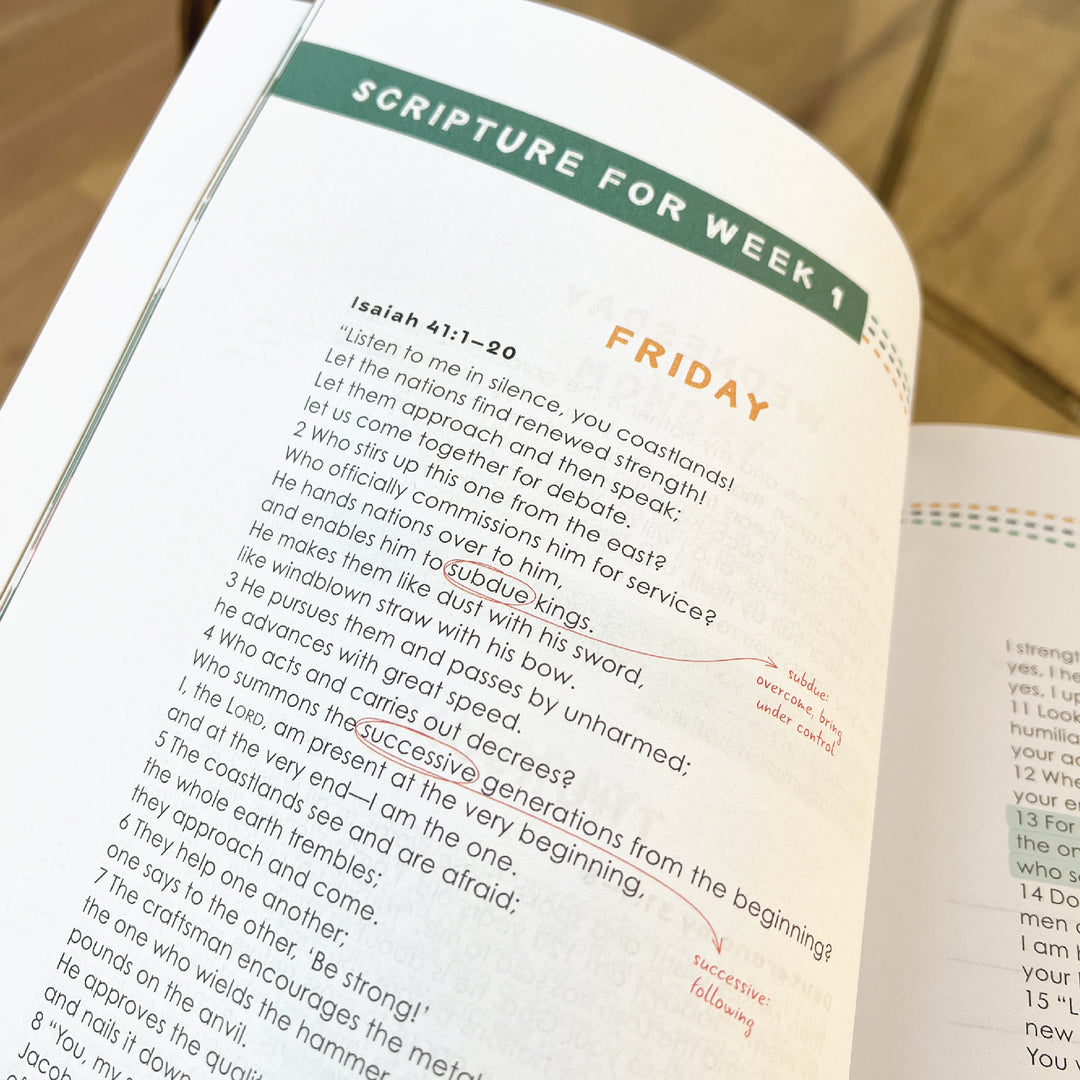 SCRIPTURE FOR WEEK 1
FRIDAY
Isaiah 41:1–20
"Listen to me in silence, you coastlands!
Let the nations find renewed strength!
Let them approach and then speak;
let us come together for debate.
2 Who stirs up this one from the east?
Who officially commissions him for service?
He hands nations over to him,
and enables him to subdue kings.
He makes them like dust with his sword,
like windblown straw with his bow.
3 He pursues them and passes by unharmed;
he advances with great speed.
4 Who acts and carries out decrees?
Who summons the successive generations from the beginning?
I, the LORD, am present at the very beginning,
and at the very end—I am the one.
5 The coastlands see and are afraid;
the whole earth trembles;
they approach and come.
6 They help one another;
one says to the other, 'Be strong!'
7 The craftsman encourages the
the one who wields the hammer
pounds on the anvil.
He approves the
and nails it down
8 "You, my
Jacob
subdue:
overcome, bring
under control
successive:
following
I
yes, I
yes, I
11 Look
your
12
your
13 For
the
who
14 Do
men
I am
your
15
new
You